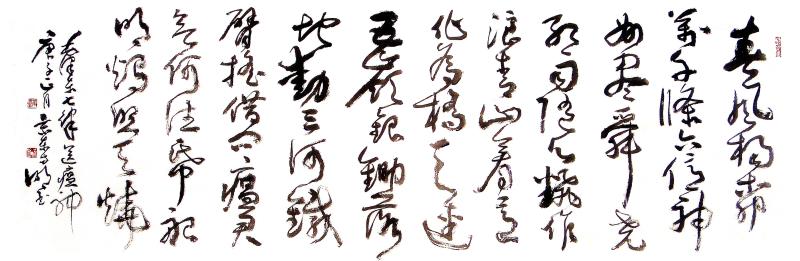 春风杨柳
萬千條六億神
州尽舜尧
红雨随心翻作
浪青山着意
化為橋天连
五岭银锄落
地動三河鐵
臂摇借问瘟君
欲何往纸船
明烛照天烧
毛泽东七律送瘟神
庚子